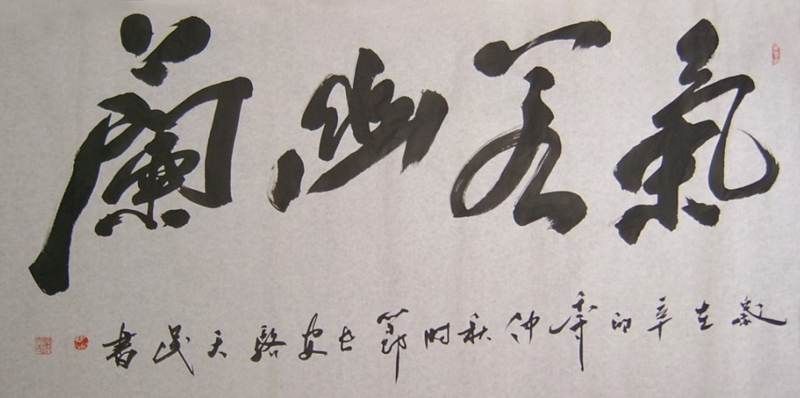 氣若幽蘭
歲在辛卯年仲秋時節長安駱天民書